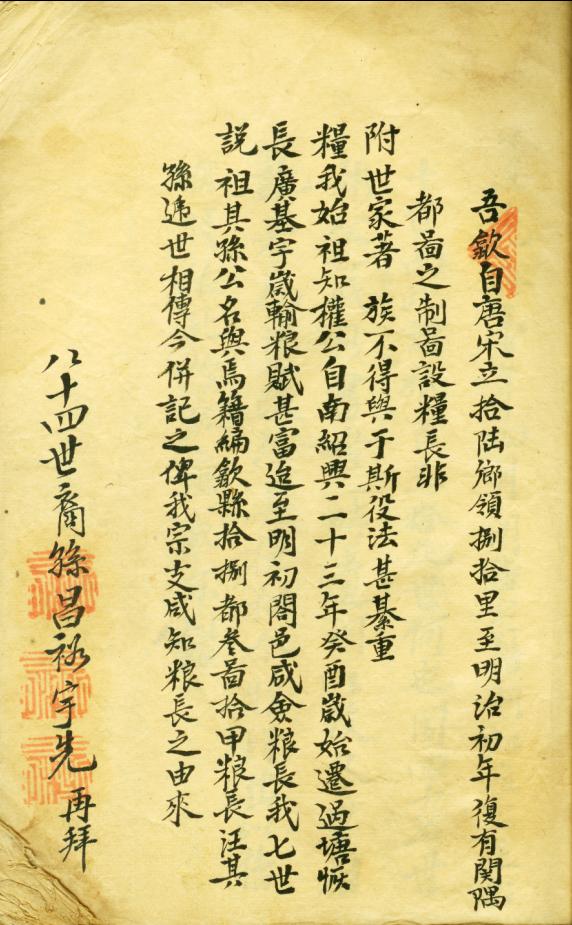 吾歙自唐宋立拾陸鄉領捌拾里至明治初年復有関隅
都啚之制啚設糧長非
附世家著　族不得與于斯役法甚綦重
糧我始祖知權公自南紹興二十三年癸酉歲始遷過塘恢
長廣基宇歲輸粮賦甚富迨至明初閤邑咸僉粮長我七世
説祖其孫公名與焉籍編歙縣拾捌都叁啚拾甲粮長汪其
孫递世相傳今併記之俾我宗支咸知粮長之由來
八十四世裔孫昌裕宇先再拜